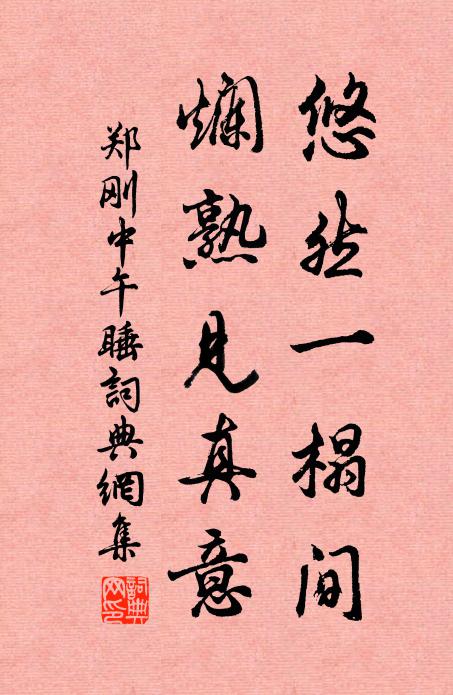 悠然一榻间
爛熟見真意
郑刚中午睡詞典網集
詞典網印